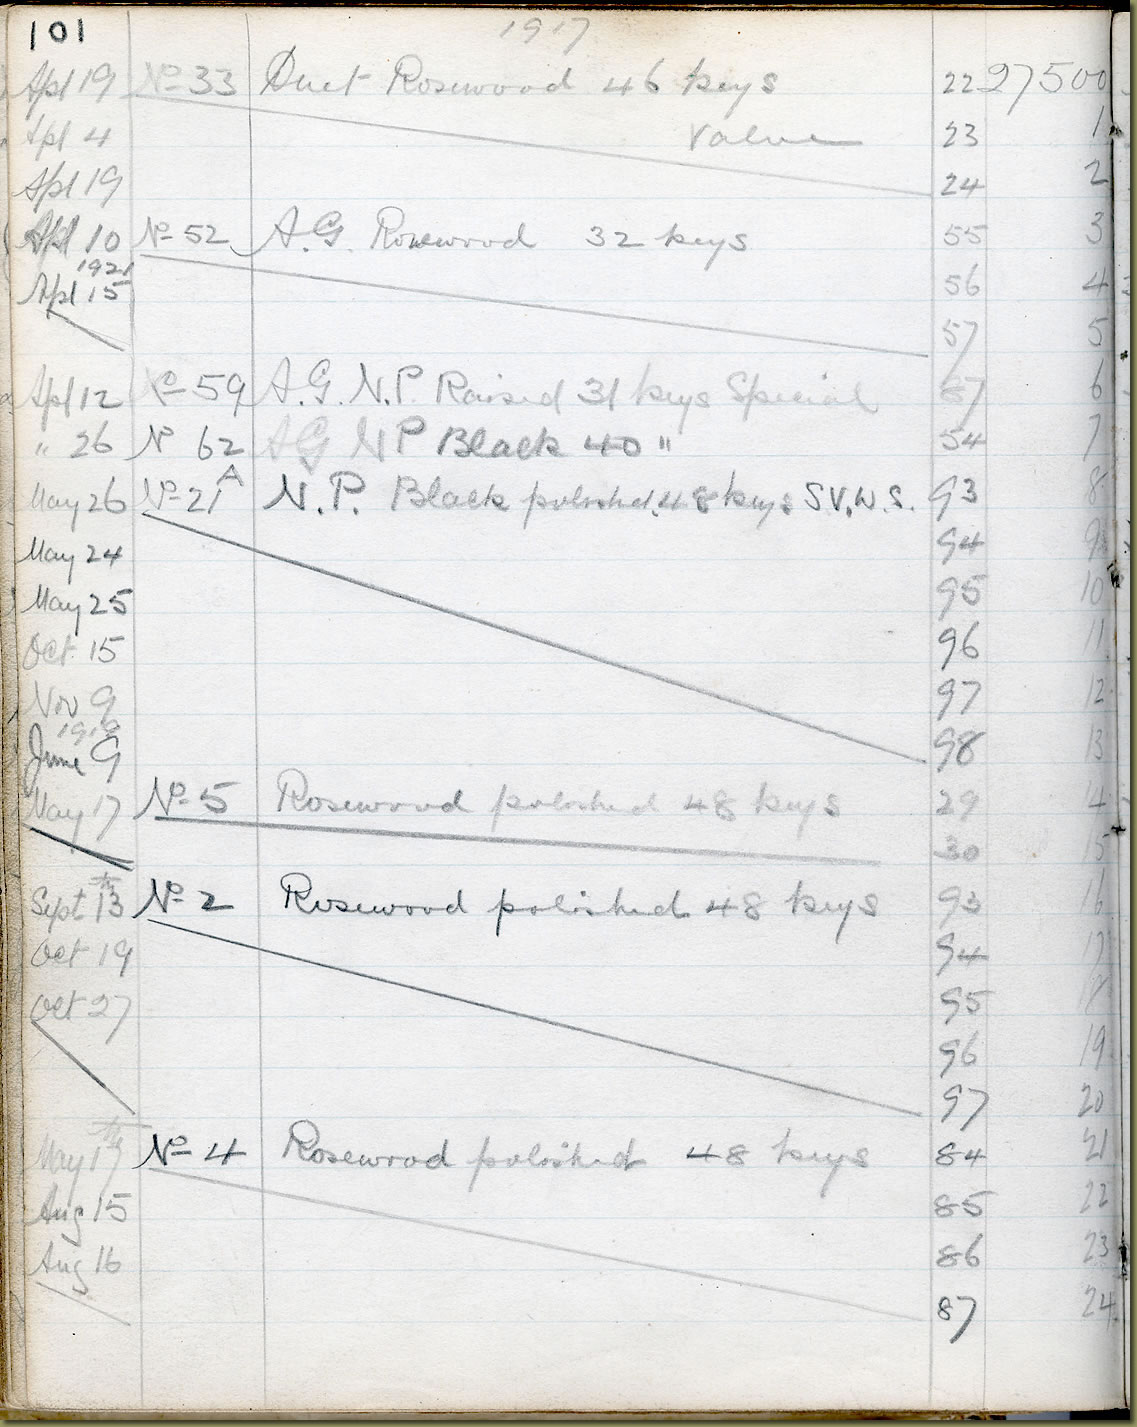 101 1917
Apl 19 No 33 Duet Rosewood 46 keys 22 27500
Apl 4 Valve 23 1
Apl 19 24 2
Apl 10 No 52 A.G. Rosewood 32 keys 55 3
1921
Apl 15 56 4
57 5
Apl 12 No 59 A.G. N.P. Raised 31 keys Special 87 6
" 26 No 62 AG NP Black 40 " 54 7
May 26 No 21A N.P. Black polished 48 keys S.V.W.S. 93 8
May 24 94 9
May 25 95 10
Oct 15 96 11
Nov 9 97 12
1919
June 9 98 13
May 17 No 5 Rosewood polished 48 keys 29 14
30 15
Sept 13th No 2 Rosewood polished 48 keys 93 16
Oct 19 94 17
Oct 27 95 18
96 19
97 20
May 17th No 4 Rosewood polished 48 keys 84 21
Aug 15 85 22
Aug 16 86 23
87 24